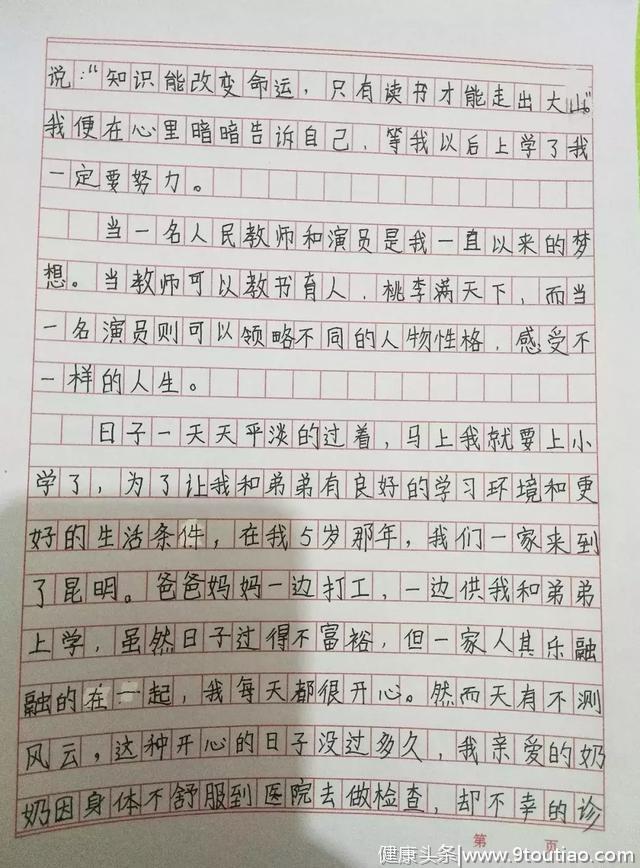 说:“知识能改变命运，只有读书才能走出大山。”
我便在心里暗暗告诉自己，等我以后上学了我
一定要努力。
当一名人民教师和演员是我一直以来的梦
想。当教师可以教书育人，桃李满天下，而当
一名演员则可以领略不同的人物性格，感受不
一样的人生。
日子一天天平淡的过着，马上我就要上小
学了，为了让我和弟弟有良好的学习环境和更
好的生活条件，在我5岁那年，我们一家来到
了昆明。爸爸妈妈一边打工，一边供我和弟弟
上学，虽然日子过得不富裕，但一家人其乐融
融的在一起，我每天都很开心。然而天有不测
风云，这种开心的日子没过多久，我亲爱的奶
奶因身体不舒服到医院去做检查，却不幸的诊
第 页
健康头条/www.9toutiao.com